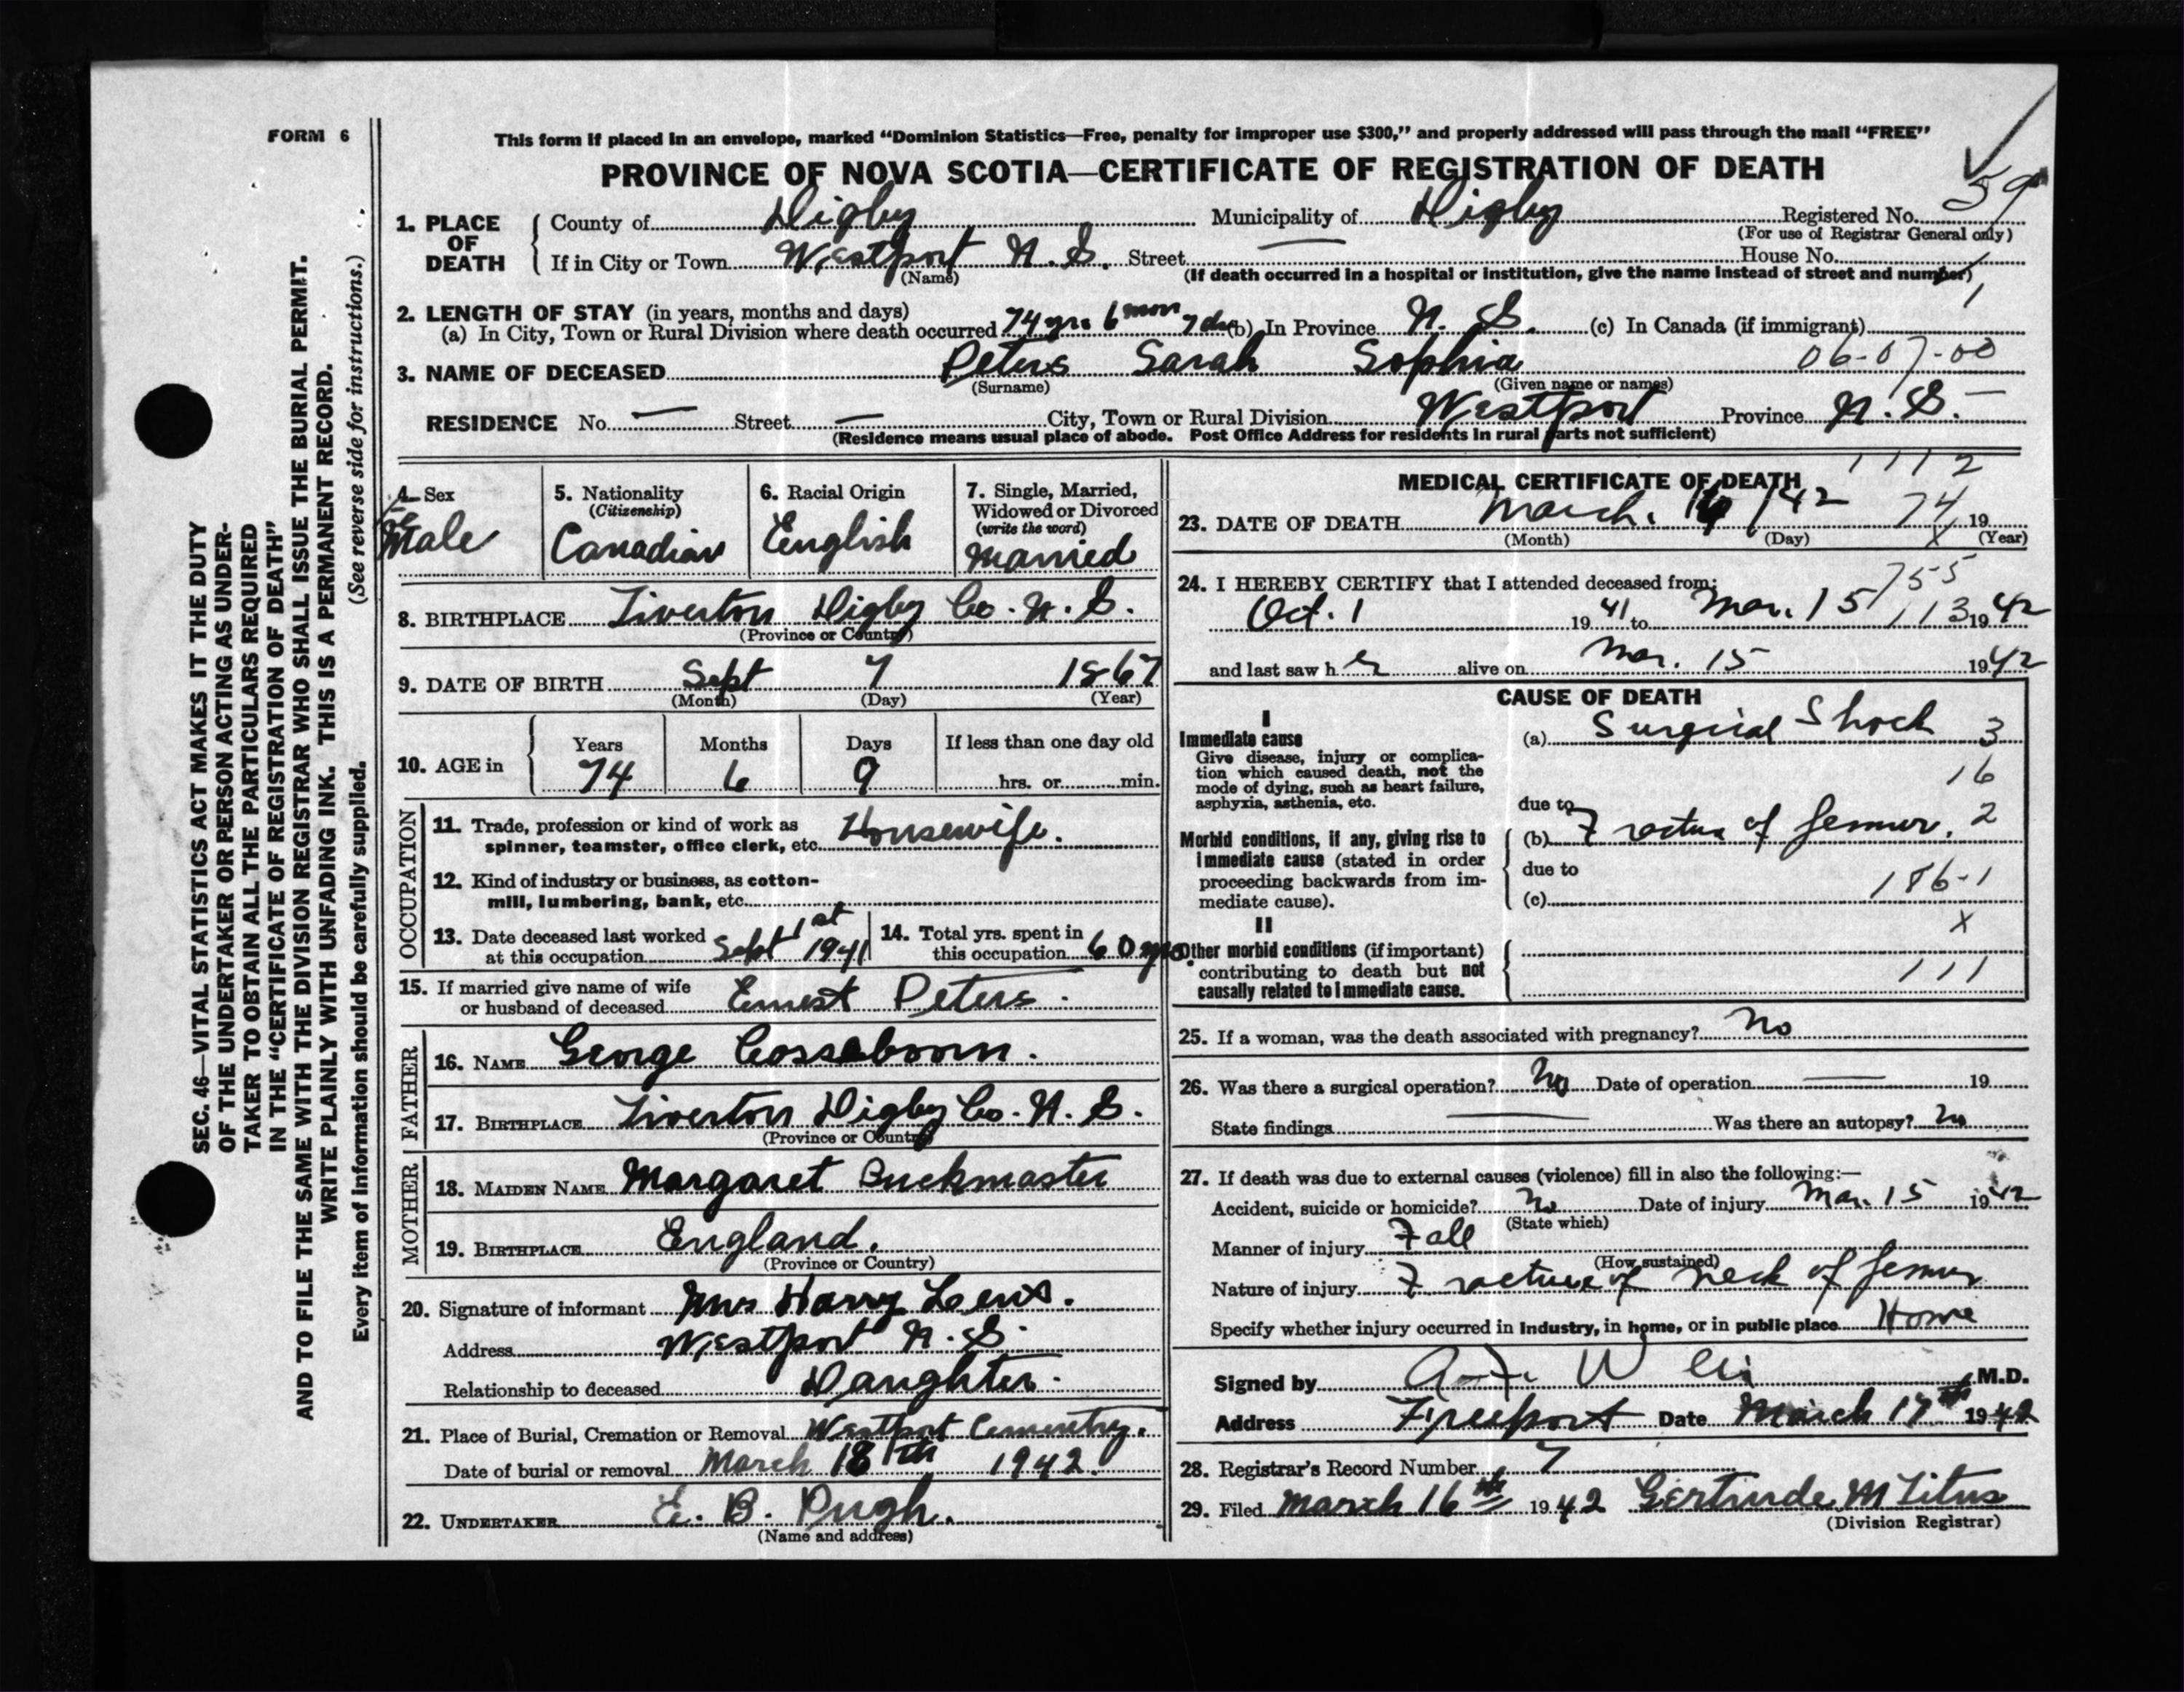 FORM 6
This form if placed in an envelope, marked “Dominion Statistics—Free, penalty for improper use $300,” and properly addressed will pass through the mail “FREE”
PROVINCE OF NOVA SCOTIA—CERTIFICATE OF REGISTRATION OF DEATH
1. PLACE OF DEATH { County of Digby Municipality of Digby Registered No. 59
(For use of Registrar General only)
If in City or Town Westport N.S. Street — House No.
(Name) (If death occurred in a hospital or institution, give the name instead of street and number)
1
2. LENGTH OF STAY (in years, months and days)
(a) In City, Town or Rural Division where death occurred 74 yrs 6 mon 7 da (b) In Province N. S. (c) In Canada (if immigrant)
06-07-00
3. NAME OF DECEASED Peters Sarah Sophia
(Surname) (Given name or names)
RESIDENCE No. — Street — City, Town or Rural Division Westport Province N.S.
(Residence means usual place of abode. Post Office Address for residents in rural parts not sufficient)
4. Sex FeMale
5. Nationality (Citizenship) Canadian
6. Racial Origin English
7. Single, Married, Widowed or Divorced (write the word) Married
8. BIRTHPLACE Tiverton Digby Co. N. S.
(Province or Country)
9. DATE OF BIRTH Sept 7 1867
(Month) (Day) (Year)
10. AGE in { Years 74 Months 6 Days 9 If less than one day old hrs. or min.
OCCUPATION
11. Trade, profession or kind of work as spinner, teamster, office clerk, etc. Housewife.
12. Kind of industry or business, as cotton-mill, lumbering, bank, etc.
13. Date deceased last worked at this occupation Sept 1st 1941
14. Total yrs. spent in this occupation 60 yrs
15. If married give name of wife or husband of deceased Ernest Peters.
FATHER
16. NAME George Cossaboom.
17. BIRTHPLACE Tiverton Digby Co. N. S.
(Province or Country)
MOTHER
18. MAIDEN NAME Margaret Buckmaster
19. BIRTHPLACE England.
(Province or Country)
20. Signature of informant Mrs Harry Lent.
Address Westport N.S.
Relationship to deceased Daughter.
21. Place of Burial, Cremation or Removal Westport Cementry.
Date of burial or removal March 18th 1942.
22. UNDERTAKER E. B. Pugh.
(Name and address)
1112
MEDICAL CERTIFICATE OF DEATH
23. DATE OF DEATH March. 16 /42 74 19
(Month) (Day) X (Year)
24. I HEREBY CERTIFY that I attended deceased from:
755
Oct. 1 19 41 to Mar. 15 113 19 42
and last saw h er alive on Mar. 15 19 42
CAUSE OF DEATH
I
Immediate cause
Give disease, injury or complication which caused death, not the mode of dying, such as heart failure, asphyxia, asthenia, etc.
(a) Surgical Shock 3
16
due to
Morbid conditions, if any, giving rise to immediate cause (stated in order proceeding backwards from immediate cause).
(b) Fractue of femur. 2
due to
(c) 186-1
II
X
Other morbid conditions (if important) contributing to death but not causally related to immediate cause.
111
25. If a woman, was the death associated with pregnancy? No
26. Was there a surgical operation? No Date of operation — 19
State findings — Was there an autopsy? No
27. If death was due to external causes (violence) fill in also the following:—
3
Accident, suicide or homicide? No Date of injury Mar. 15 1942
(State which)
Manner of injury Fall
(How sustained)
Nature of injury Fracture of neck of femur
Specify whether injury occurred in industry, in home, or in public place Home
Signed by M.D.
Address Freeport Date March 17th 1942
28. Registrar's Record Number 7
29. Filed March 16th 1942 Gertrude M Titus
(Division Registrar)
SEC. 46—VITAL STATISTICS ACT MAKES IT THE DUTY
OF THE UNDERTAKER OR PERSON ACTING AS UNDER-
TAKER TO OBTAIN ALL THE PARTICULARS REQUIRED
IN THE “CERTIFICATE OF REGISTRATION OF DEATH”
AND TO FILE THE SAME WITH THE DIVISION REGISTRAR WHO SHALL ISSUE THE BURIAL PERMIT.
WRITE PLAINLY WITH UNFADING INK. THIS IS A PERMANENT RECORD.
Every item of information should be carefully supplied. (See reverse side for instructions.)